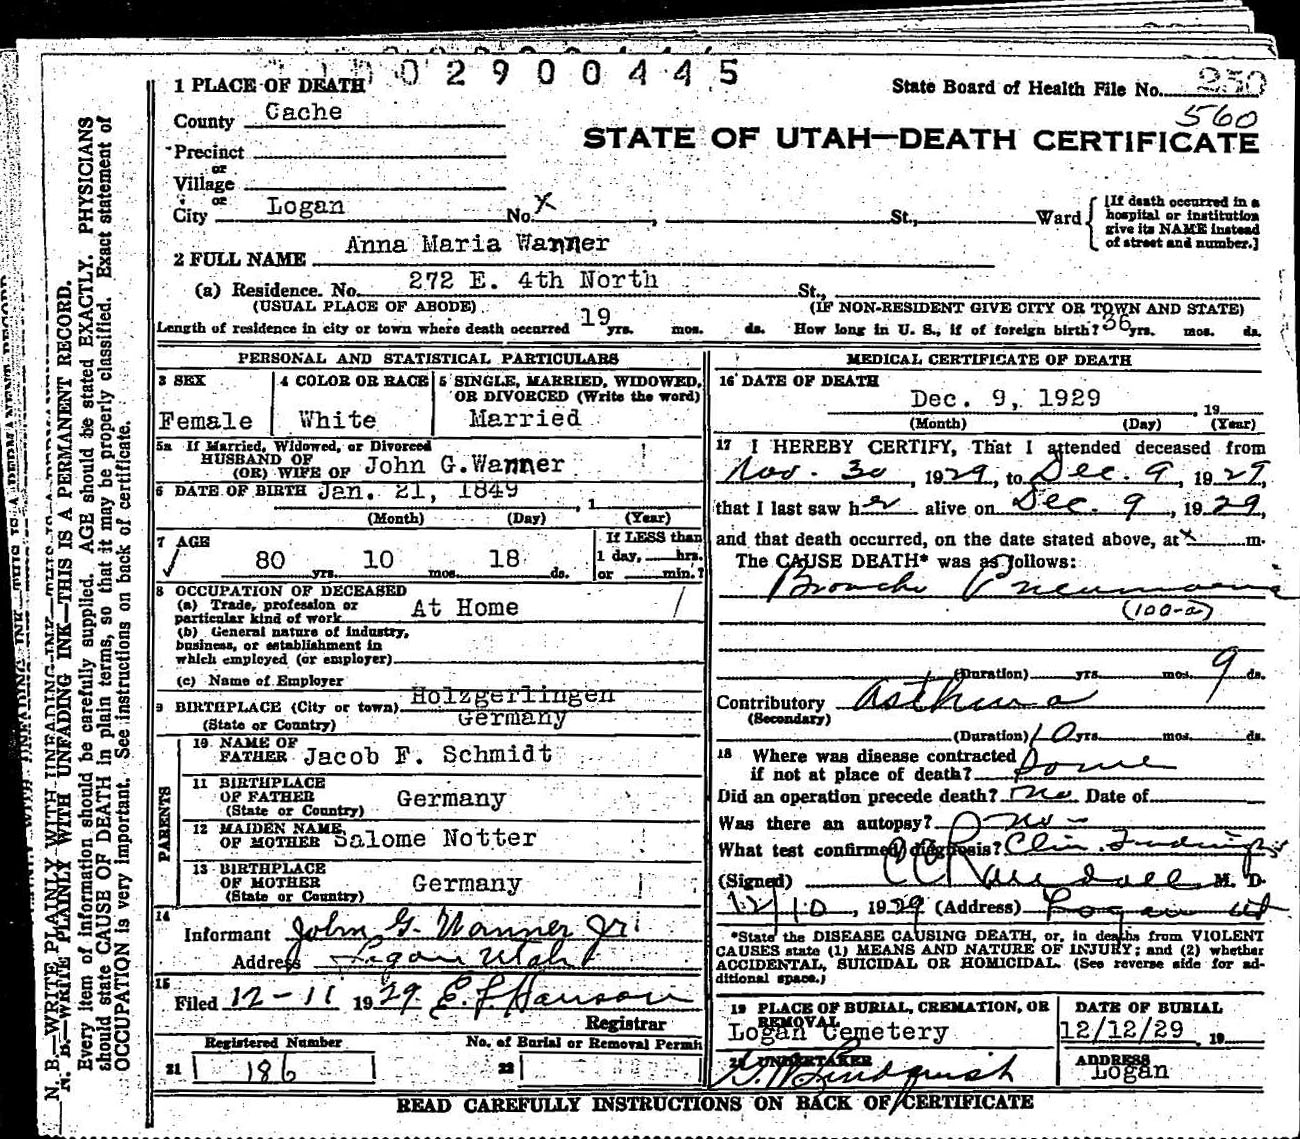 0 0 2 9 0 0 4 4 5
1 PLACE OF DEATH
State Board of Health File No. 250
560
County Cache
STATE OF UTAH—DEATH CERTIFICATE
Precinct
or
Village
or
City Logan No. X , St., Ward
[If death occurred in a
hospital or institution
give its NAME instead
of street and number.]
2 FULL NAME Anna Maria Wanner
(a) Residence. No. 272 E. 4th North St.,
(USUAL PLACE OF ABODE) (IF NON-RESIDENT GIVE CITY OR TOWN AND STATE)
Length of residence in city or town where death occurred 19 yrs. mos. ds. How long in U. S., if of foreign birth? 36 yrs. mos. ds.
PERSONAL AND STATISTICAL PARTICULARS
3 SEX 4 COLOR OR RACE 5 SINGLE, MARRIED, WIDOWED,
OR DIVORCED (Write the word)
Female White Married
5a If Married, Widowed, or Divorced
HUSBAND OF
(OR) WIFE OF John G. Wanner
6 DATE OF BIRTH Jan. 21, 1849 , 1
(Month) (Day) (Year)
7 AGE If LESS than
1 day, hrs.
or min.?
80 yrs. 10 mos. 18 ds.
8 OCCUPATION OF DECEASED
(a) Trade, profession or
particular kind of work At Home
(b) General nature of industry,
business, or establishment in
which employed (or employer)
(c) Name of Employer
9 BIRTHPLACE (City or town) Holzgerlingen
(State or Country) Germany
PARENTS
10 NAME OF
FATHER Jacob F. Schmidt
11 BIRTHPLACE
OF FATHER Germany
(State or Country)
12 MAIDEN NAME
OF MOTHER Salome Notter
13 BIRTHPLACE
OF MOTHER Germany
(State or Country)
14
Informant John G. Wanner Jr.
Address Logan Utah
15
Filed 12-11 1929 E. F. Hanson
Registrar
Registered Number No. of Burial or Removal Permit
21 186 22
MEDICAL CERTIFICATE OF DEATH
16 DATE OF DEATH
Dec. 9, 1929 , 19
(Month) (Day) (Year)
17 I HEREBY CERTIFY, That I attended deceased from
Nov. 30, 1929, to Dec. 9, 1929,
that I last saw her alive on Dec. 9, 1929,
and that death occurred, on the date stated above, at x m.
The CAUSE DEATH* was as follows:
Broncho Pneumonia
(100-a)
(Duration) yrs. mos. 9 ds.
Contributory Asthma
(Secondary)
(Duration) 10 yrs. mos. ds.
18 Where was disease contracted
if not at place of death? Home
Did an operation precede death? no Date of
Was there an autopsy? no
What test confirmed diagnosis? Clin. Findings
(Signed) M. D.
12/10, 1929 (Address) Logan Ut
*State the DISEASE CAUSING DEATH, or, in deaths from VIOLENT
CAUSES state (1) MEANS AND NATURE OF INJURY; and (2) whether
ACCIDENTAL, SUICIDAL OR HOMICIDAL. (See reverse side for ad-
ditional space.)
19 PLACE OF BURIAL, CREMATION, OR
REMOVAL
Logan Cemetery
DATE OF BURIAL
12/12/29 19
20 UNDERTAKER
Lindquist
ADDRESS
Logan
READ CAREFULLY INSTRUCTIONS ON BACK OF CERTIFICATE
N. B.—WRITE PLAINLY WITH UNFADING INK—THIS IS A PERMANENT RECORD.
Every item of information should be carefully supplied. AGE should be stated EXACTLY. PHYSICIANS
should state CAUSE OF DEATH in plain terms, so that it may be properly classified. Exact statement of
OCCUPATION is very important. See instructions on back of certificate.